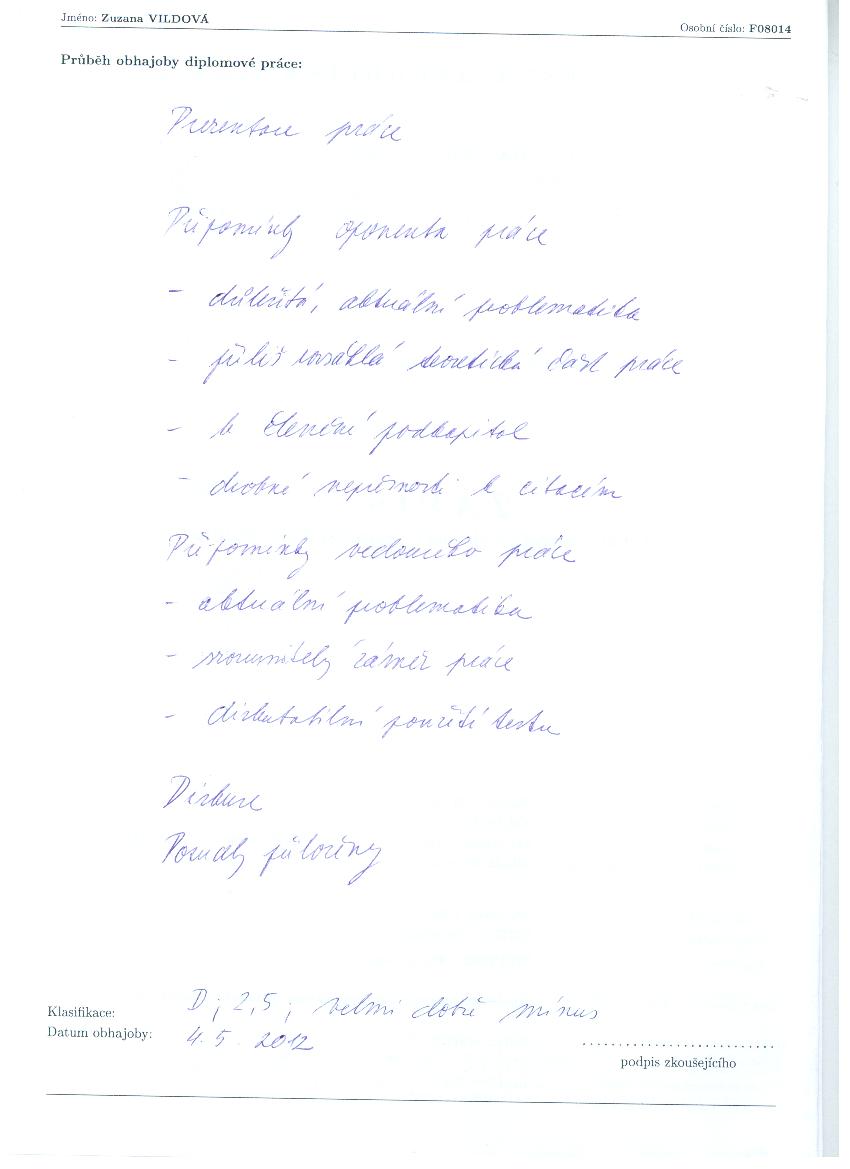 Jméno: Zuzana VILDOVÁ
Osobní číslo: F08014
Průběh obhajoby diplomové práce:
Prezentace práce
Připomínky oponenta práce
- důležitá, aktuální problematika
- příliš rozsáhlá teoretická část práce
- k členění podkapitol
- drobné nepřesnosti k citacím
Připomínky vedoucího práce
- aktuální problematika
- srozumitelný záměr práce
- diskutabilní použití testu
Diskuse
Posudky přiloženy
Klasifikace: D; 2,5; velmi dobře mínus
Datum obhajoby: 4. 5. 2012
podpis zkoušejícího